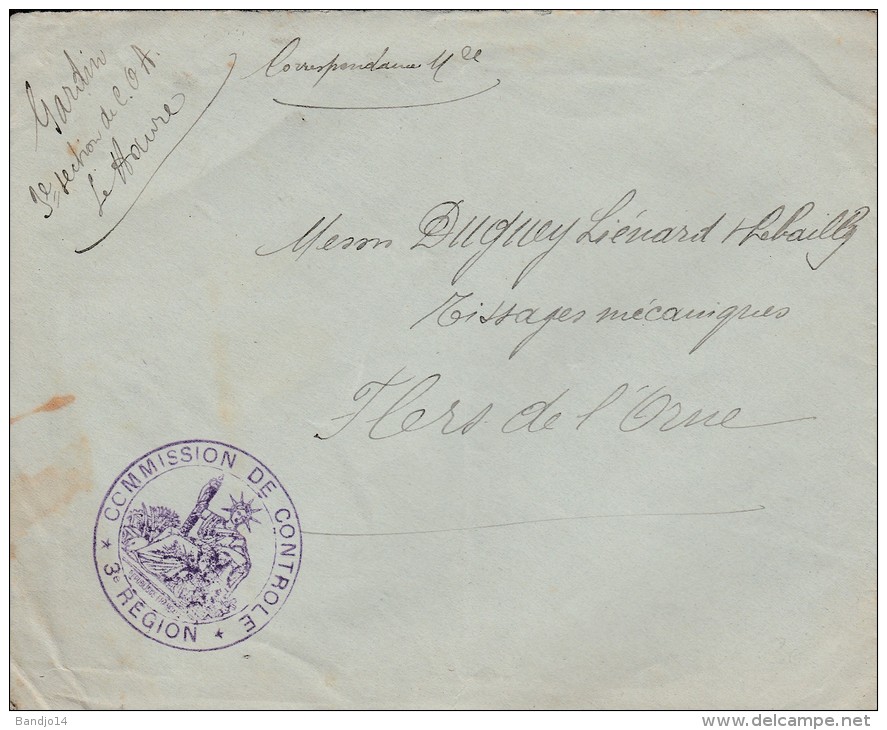 Gardin
3e section de C.O.A.
Le Havre
Correspondance Mre
Messrs Duguey Liénard & Lebailly
Tissages mécaniques
Flers de l'Orne
COMMISSION DE CONTROLE
* 3e RÉGION *
Bandjo14
www.delcampe.net